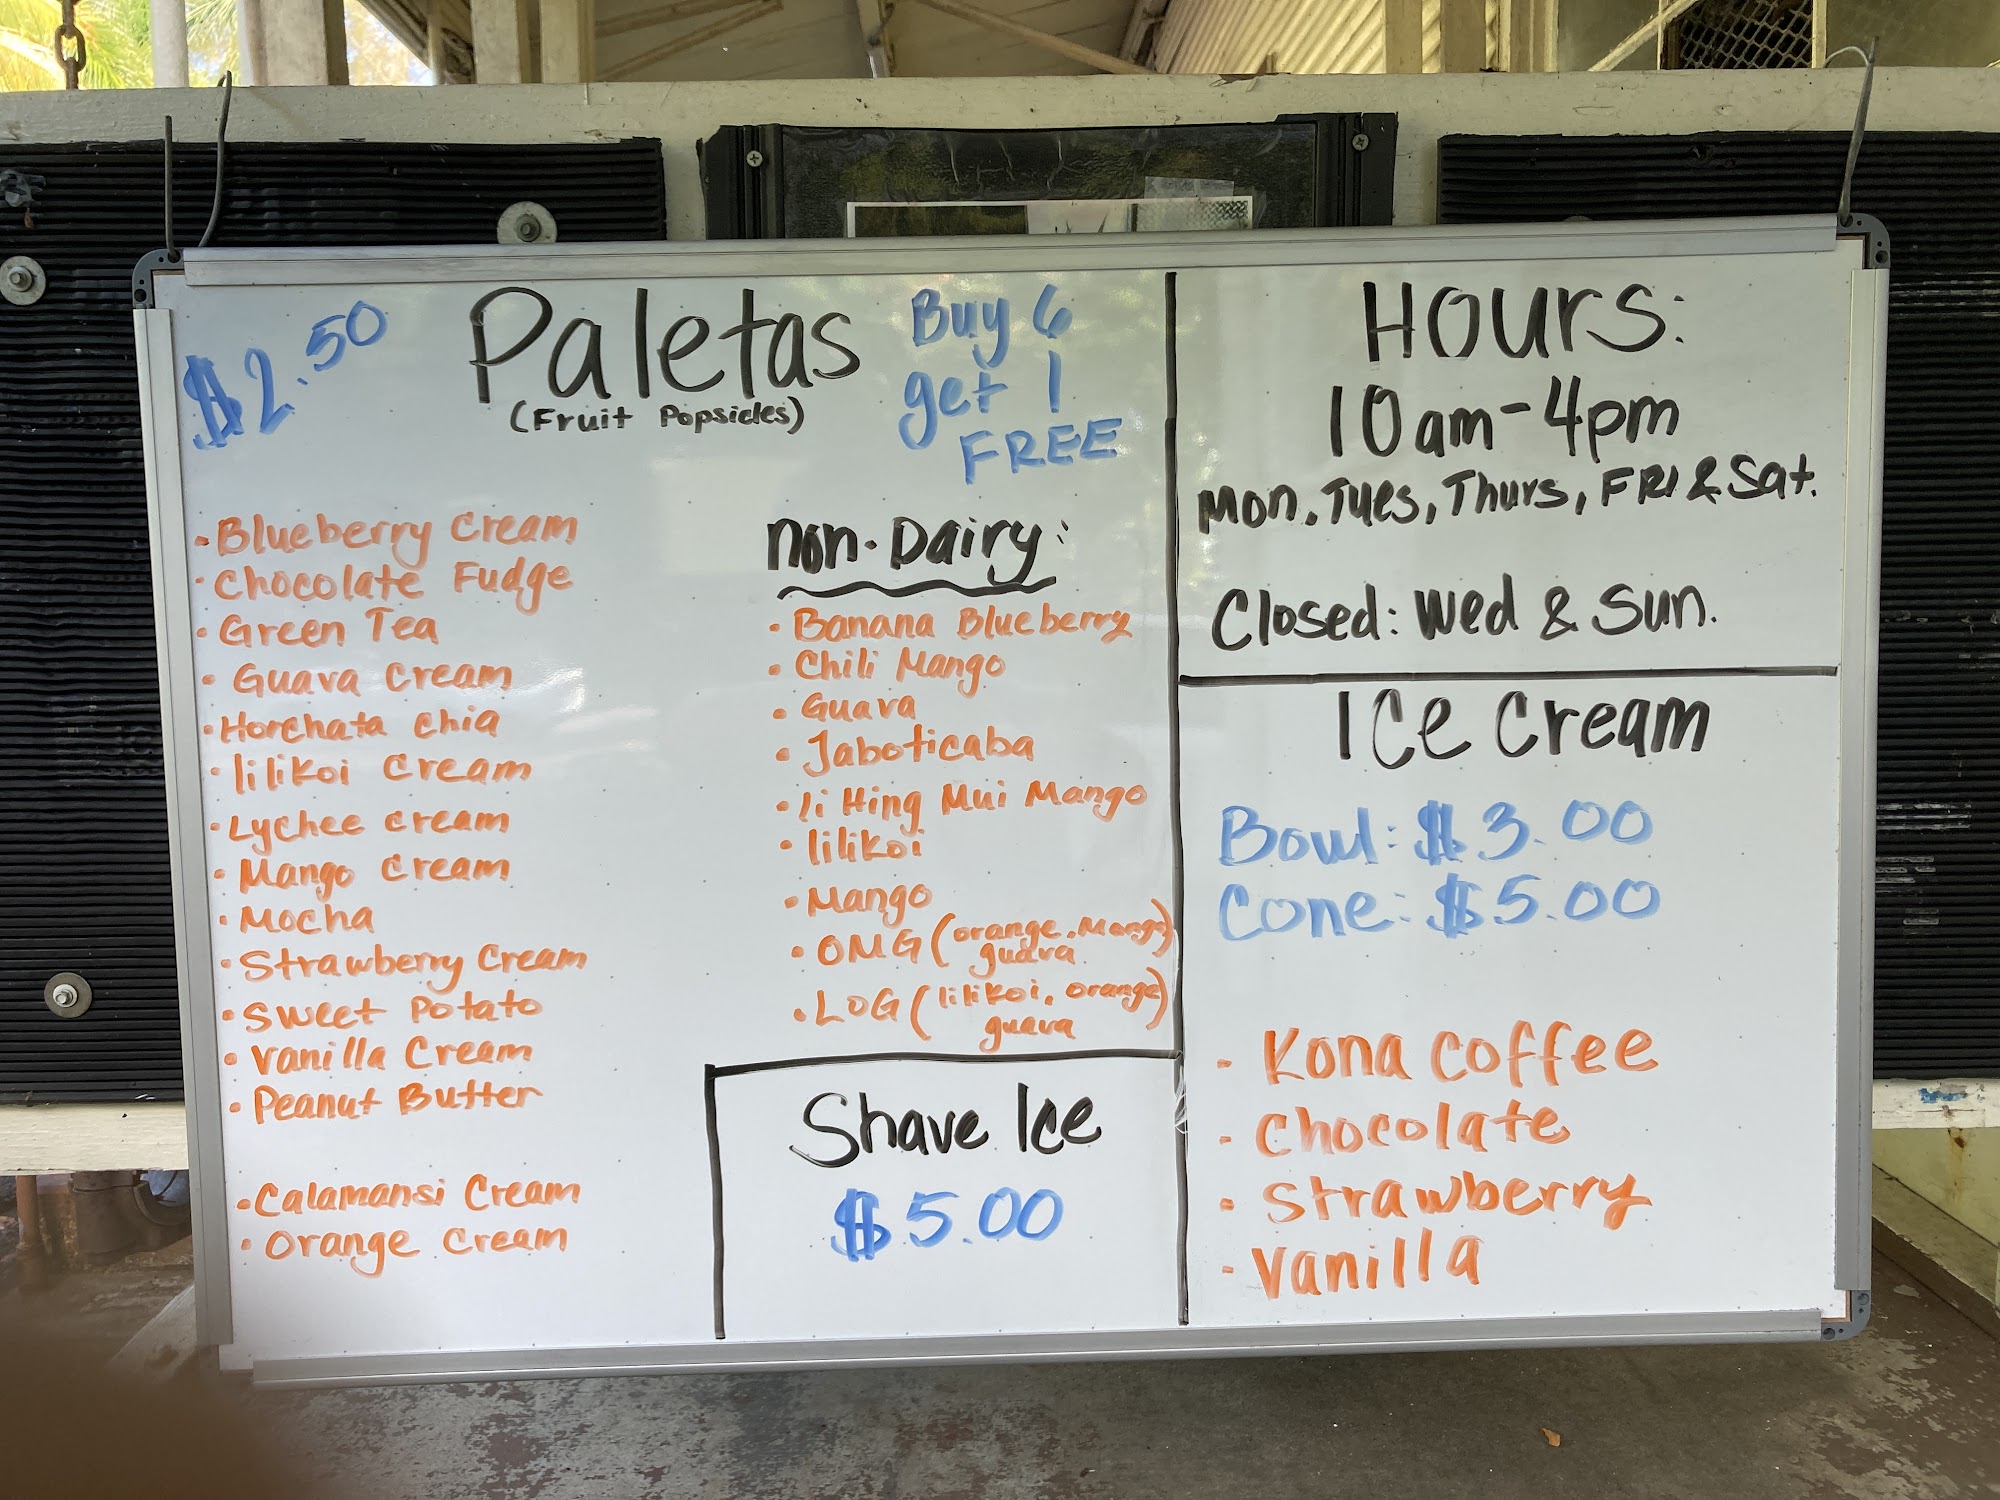 $2.50
Paletas
(Fruit Popsicles)
Buy 6
get 1
FREE
• Blueberry Cream
• Chocolate Fudge
• Green Tea
• Guava Cream
• Horchata Chia
• lilikoi Cream
• Lychee cream
• Mango Cream
• Mocha
• Strawberry Cream
• Sweet Potato
• Vanilla Cream
• Peanut Butter
• Calamansi Cream
• Orange Cream
non-Dairy:
• Banana Blueberry
• Chili Mango
• Guava
• Jaboticaba
• li Hing Mui Mango
• lilikoi
• Mango
• OMG (orange, Mango
guava)
• LOG (lilikoi, orange
guava)
Shave Ice
$5.00
Hours:
10am-4pm
Mon, Tues, Thurs, FRI & Sat.
Closed: Wed & Sun.
Ice Cream
Bowl: $3.00
Cone: $5.00
- Kona Coffee
- Chocolate
- Strawberry
- Vanilla